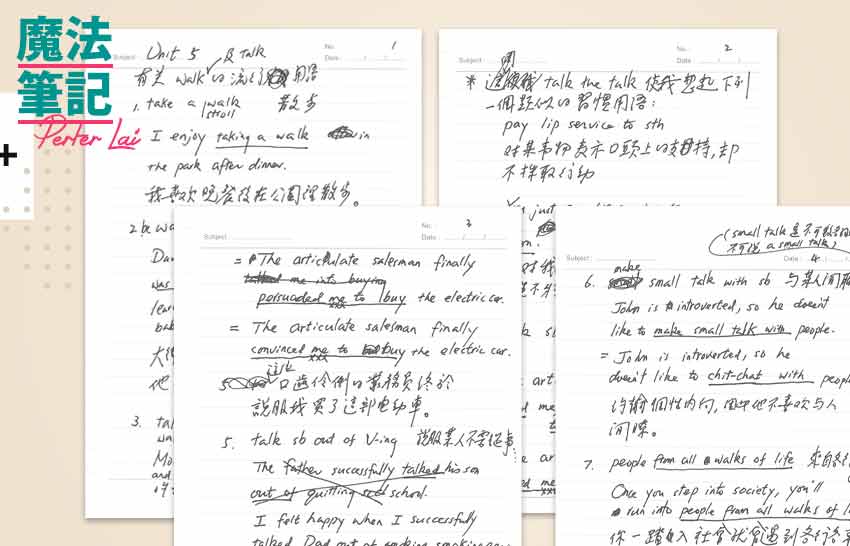 魔法
筆記
Perter Lai
Subject :
No. : 1
Date :
Unit 5
及 talk
有关 walk 的流行用语
1. take a walk 散步
stroll
I enjoy taking a walk in
the park after dinner.
我喜欢晚餐後在公園裡散步。
2. be wa
Da
was
lear
bab
大
他
3. tal
wa
Mo
and
Subject :
No. : 2
Date :
* 這 talk the talk 使我想起下列
一個類似的習慣用语：
pay lip service to sth
対某事物表示口頭上的支持，却
不採取行动
just
Subject :
No. : 3
Date :
= The articulate salesman finally
talked me into buying
persuaded me to buy the electric car.
= The articulate salesman finally
convinced me to buy the electric car.
口齒伶俐的業務員终於
說服我買了這部电动車。
5. talk sb out of V-ing 說服某人不要做某事
The father successfully talked his son
out of quitting school.
I felt happy when I successfully
talked Dad out of smoking
(small talk 是不可數名詞
不可说 a small talk)
Subject :
Date : 4
6. make small talk with sb 与某人闲聊
John is introverted, so he doesn't
like to make small talk with people.
= John is introverted, so he
doesn't like to chit-chat with people
约翰個性内向，因此他不喜欢与人
闲聊。
7. people from all walks of life 來自各
Once you step into society, you'll
run into people from all walks of li
你一踏入社會就會遇到各行各業